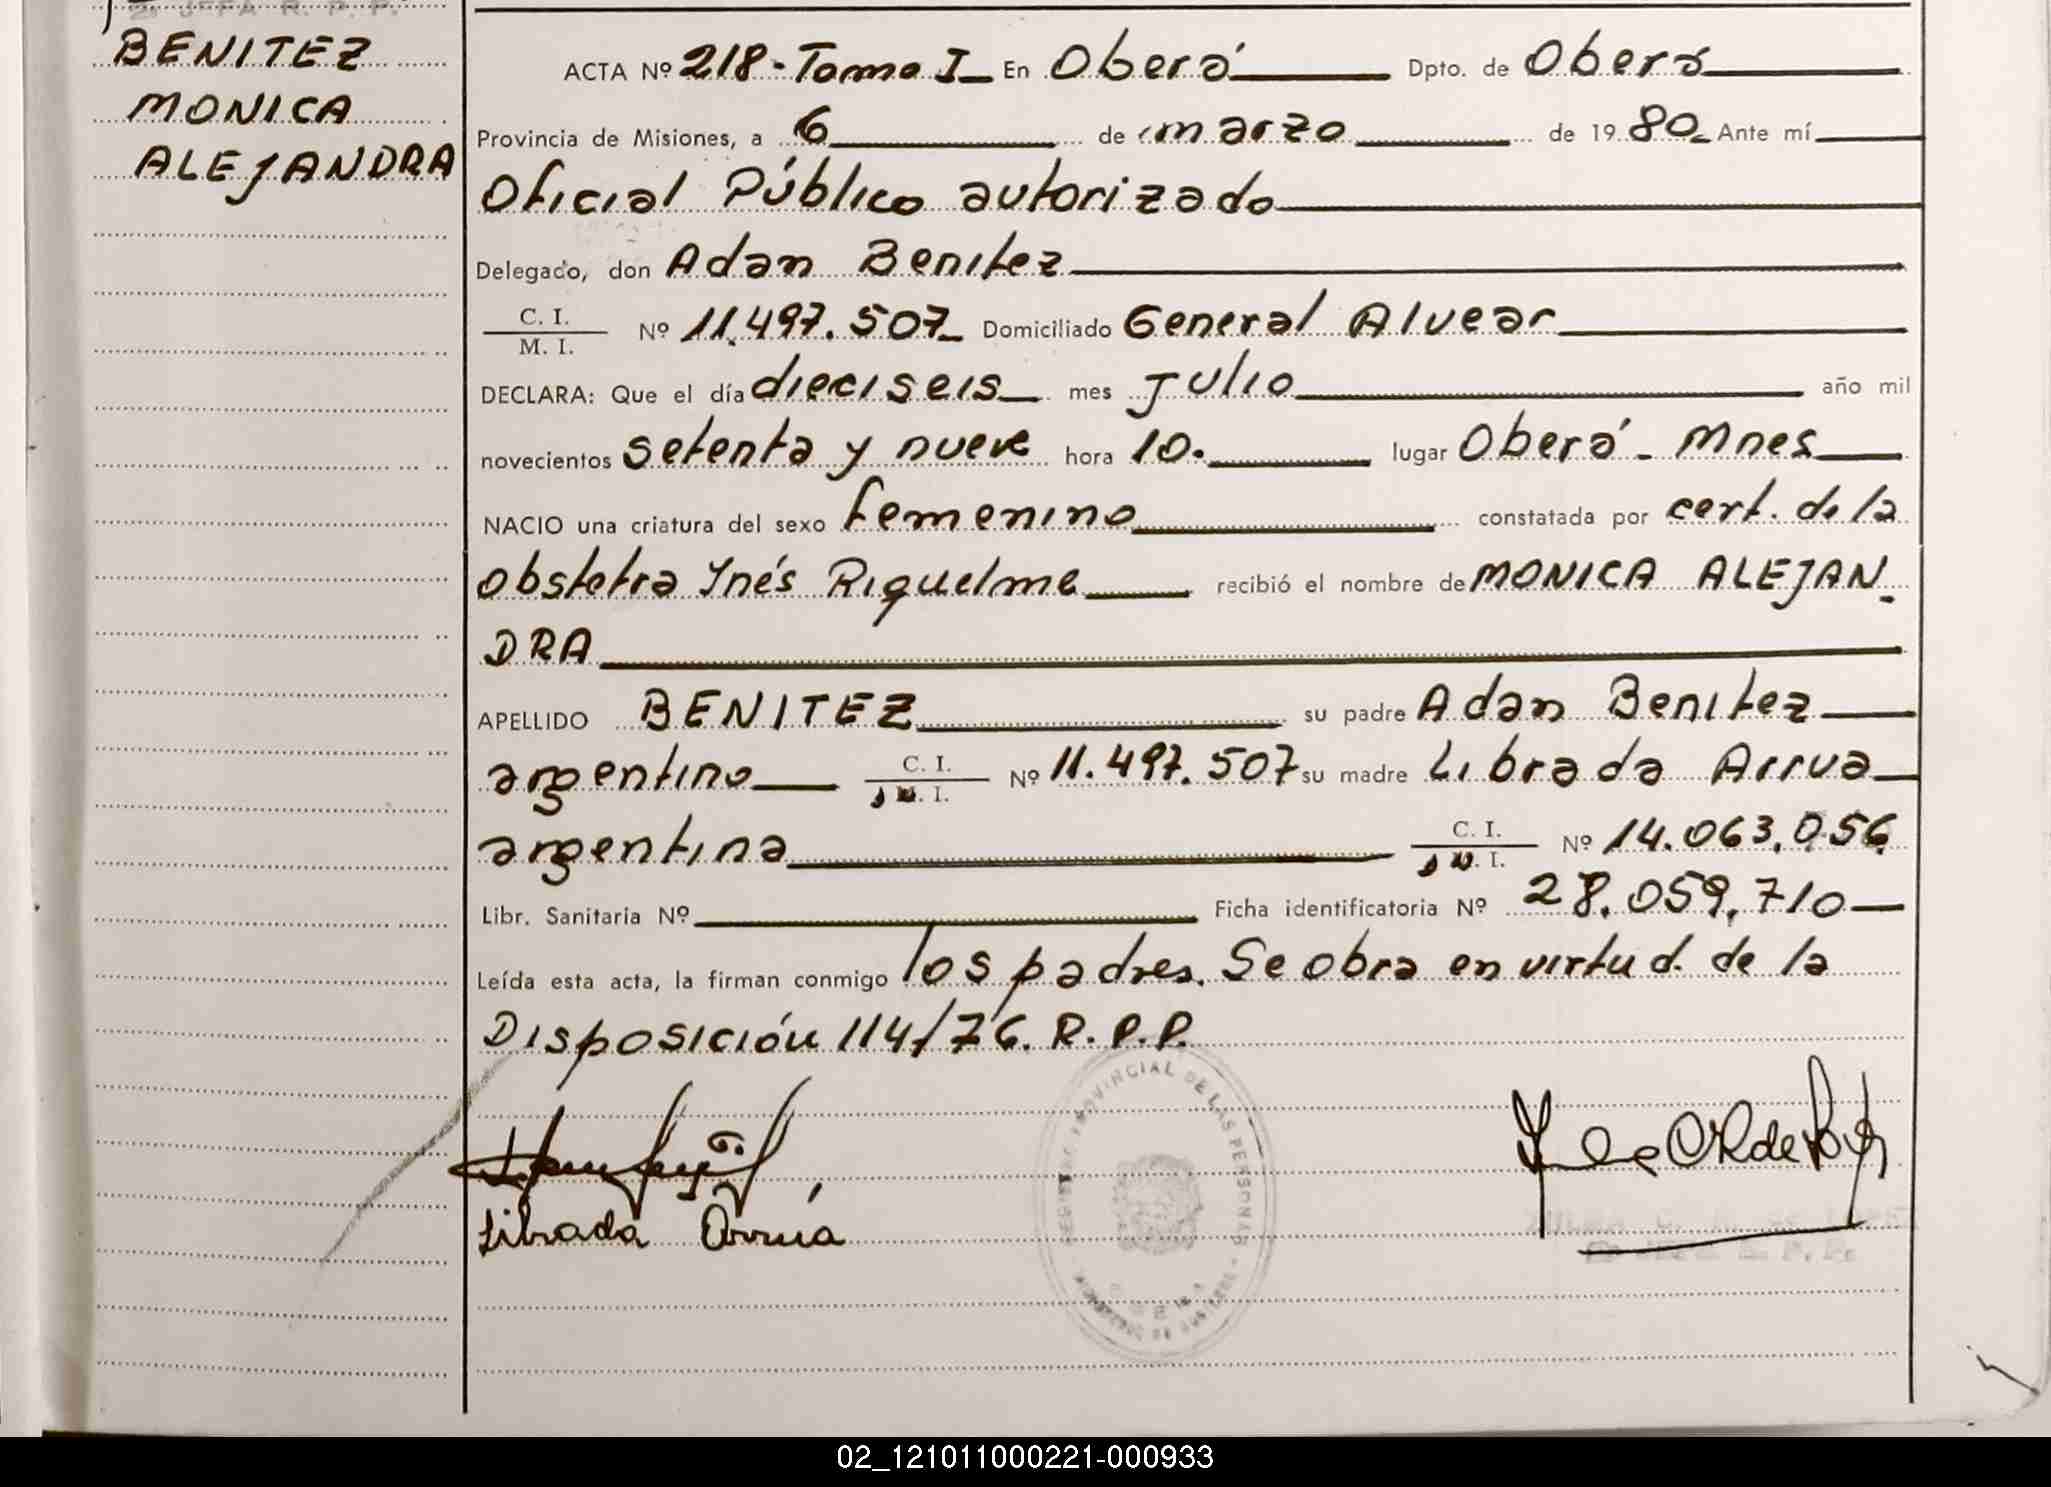 2o JEFA R. P. P.
BENITEZ
MONICA
ALEJANDRA
ACTA Nº 218-Tomo I En Oberá Dpto. de Oberá
Provincia de Misiones, a 6 de marzo de 1980 Ante mí
Oficial Público autorizado
Delegado, don Adan Benitez
C. I.
M. I.
Nº 11.497.507 Domiciliado General Alvear
DECLARA: Que el día dieciseis mes Julio año mil
novecientos setenta y nueve hora 10. lugar Oberá - Mnes
NACIO una criatura del sexo femenino constatada por cert. de la
obstetra Inés Riquelme recibió el nombre de MONICA ALEJAN-
DRA
APELLIDO BENITEZ su padre Adan Benitez
argentino C. I. / M. I. Nº 11.497.507 su madre Librada Arrua
argentina C. I. / M. I. Nº 14.063.056
Libr. Sanitaria Nº Ficha identificatoria Nº 28.059.710
Leída esta acta, la firman conmigo los padres. Se obra en virtud. de la
Disposición 114/76. R. P. P.
REGISTRO PROVINCIAL DE LAS PERSONAS
Librada Arrúa
JEFA R. P. P.
02_121011000221-000933